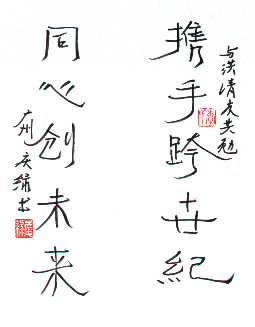 与洪清友共勉
携手跨世紀
同心创未来
广州
书